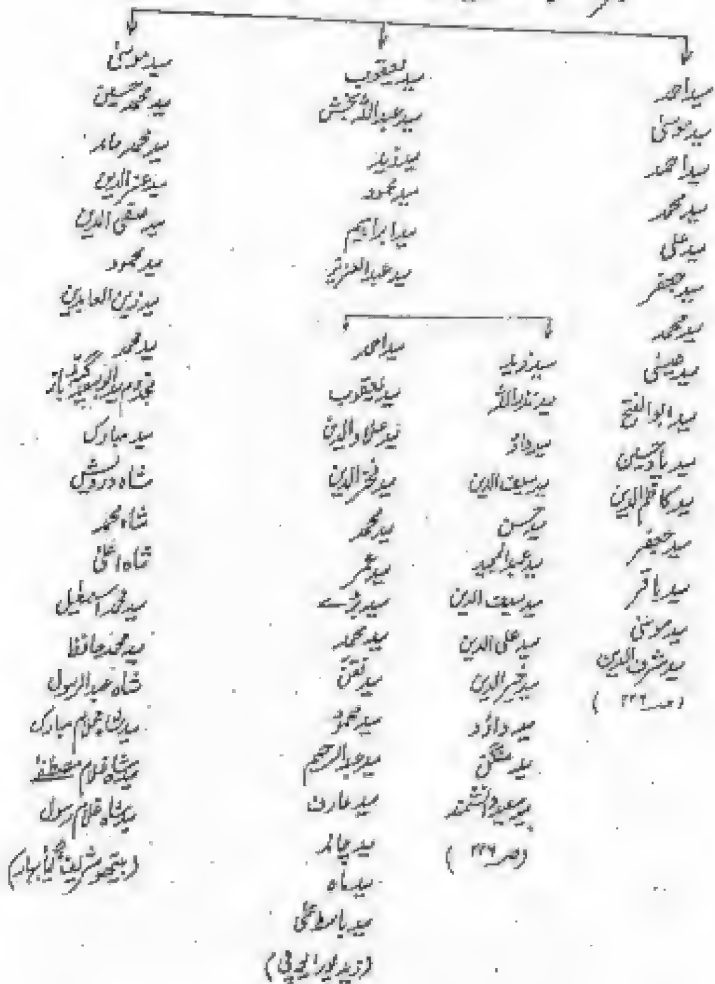 سید احمد
سید موسیٰ
سید احمد
سید محمد
سید علی
سید جعفر
سید محمد
سید عیسیٰ
سید ابوالفتح
سید یاد حسین
سید کاظم الدین
سید جعفر
سید باقر
سید موسیٰ
سید شرف الدین
سید یعقوب
سید عبداللہ بخش
سید زید
سید محمود
سید ابراہیم
سید عبدالعزیز
سید زید
سید ثناء اللہ
سید داؤد
سید سیف الدین
سید حسن
سید عبدالمجید
سید سیف الدین
سید علی الدین
سید خیر الدین
سید داؤد
سید منگن
سید سعید دانشمند
سید احمد
سید یعقوب
سید علاء الدین
سید فخر الدین
سید محمد
سید عمر
سید بڑے
سید محمد
سید نقن
سید محمود
سید عبدالرحیم
سید عارف
سید چاند
سید ماہ
سید باسط علی
(زید پور یوپی)
سید موسیٰ
سید محمد حسین
سید محمد
سید عزالدین
سید تقی الدین
سید محمود
سید زین العابدین
سید محمد
سید مبارک
شاہ درویش
شاہ محمد
شاہ اعلیٰ
سید محمد اسمٰعیل
سید محمد حافظ
شاہ عبدالرسول
سید شاہ غلام مبارک
سید شاہ غلام مصطفےٰ
سید شاہ غلام رسول
(بیتھو شریف گیا بہار)